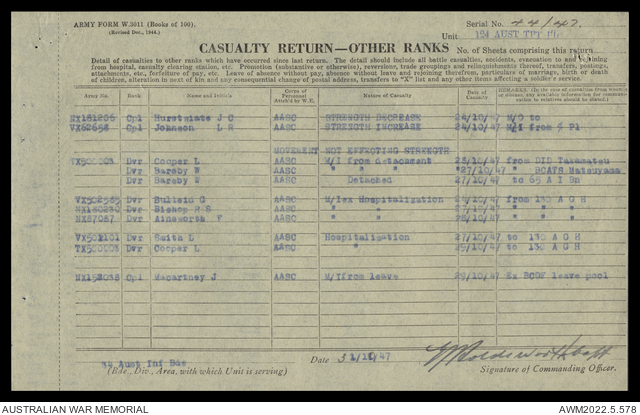 ARMY FORM W.3011 (Books of 100).
(Revised Dec., 1944.)
Serial No. 44/47.
Unit 124 AUST TPT PL
CASUALTY RETURN—OTHER RANKS
No. of Sheets comprising this return
Detail of casualties to other ranks which have occurred since last return. The detail should include all battle casualties, accidents, evacuation to and rejoining
from hospital, casualty clearing station, etc. Promotion (substantive or otherwise), reversions, trade groupings and relinquishments thereof, transfers, postings,
attachments, etc., forfeiture of pay, etc. Leave of absence without pay, absence without leave and rejoining therefrom, particulars of marriage, birth or death
of children, alteration in next of kin and any consequential change of postal address, transfers to "X" list and any other items affecting a soldier's service.
Army No. Rank Name and Initials Corps of Personnel Attch'd by W.E. Nature of Casualty Date of Casualty REMARKS.
Cpl Hurstwaite J C AASC STRENGTH DECREASE 24/10/47 M/O to
Cpl Johnson L R AASC STRENGTH INCREASE 24/10/47 M/I from Pl
MOVEMENT NOT EFFECTING STRENGTH
Dvr Cooper L AASC M/I from detachment /10/47 from DID Takamatsu
Dvr Barsby W AASC " " " 27/10/47 " BOATS Matsuyama
Dvr Barsby W AASC Detached /10/47 to 65 A I Bn
Dvr G AASC M/Iex Hospitalization /10/47 from 130 A G H
Dvr Bishop R S AASC " " /10/47 " " "
NX87087 Dvr Ainsworth F AASC " " /10/47 " " "
VX502101 Dvr Smith L AASC Hospitalization 27/10/47 to 130 A G H
Dvr Cooper L AASC " 29/10/47 to 130 A G H
NX158038 Cpl Macartney J AASC M/Ifrom leave 29/10/47 Ex BCOF leave pool
34 Aust Inf Bde
(Bde., Div., Area, with which Unit is serving)
Date 47
Signature of Commanding Officer.
AUSTRALIAN WAR MEMORIAL
AWM2022.5.578